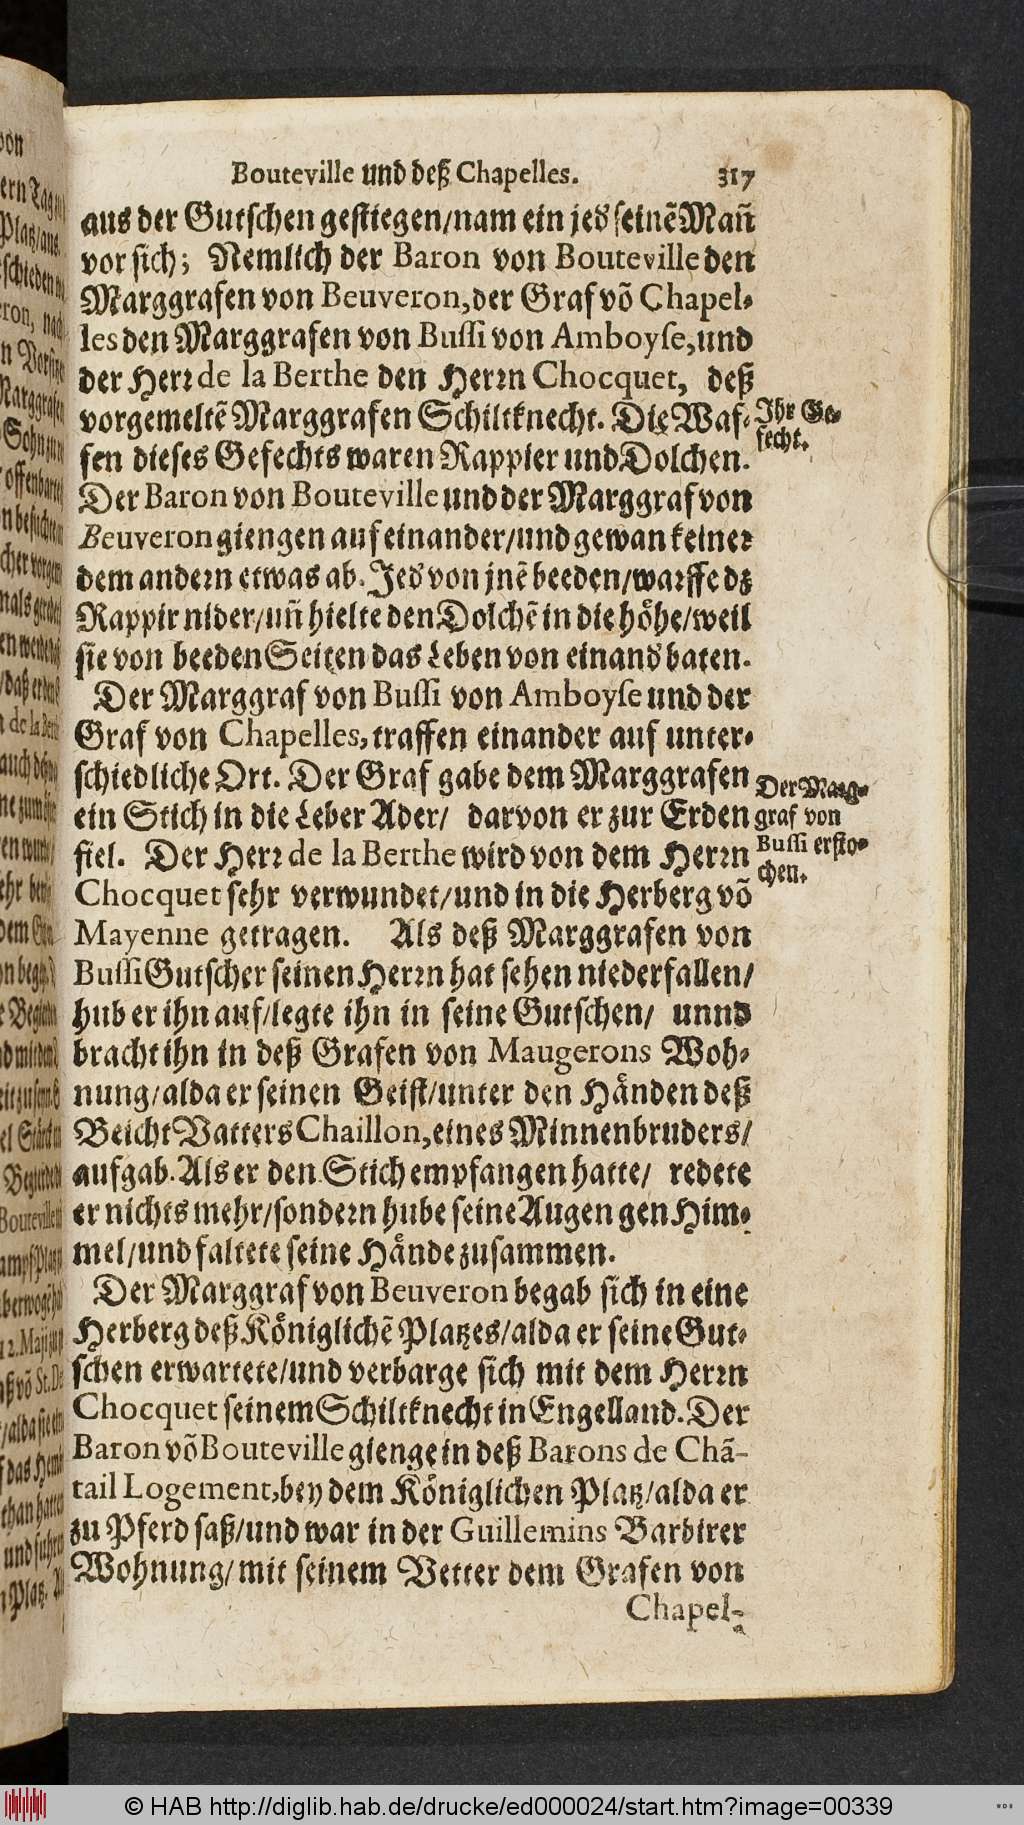 Bouteville und deß Chapelles. 317
aus der Gutschen gestiegen/nam ein jed' seinē Mañ
vor sich; Nemlich der Baron von Bouteville den
Marggrafen von Beuveron, der Graf vō Chapel-
les den Marggrafen von Bussi von Amboyse, und
der Herr de la Berthe den Herrn Chocquet, deß
vorgemeltē Marggrafen Schiltknecht. Die Waf-
fen dieses Gefechts waren Rappier und Dolchen.
Ihr Ge-
fecht.
Der Baron von Bouteville und der Marggraf von
Beuveron giengen auf einander/und gewan keiner
dem andern etwas ab. Jed' von jnē beeden/warffe dz
Rappir nider/uñ hielte den Dolchē in die höhe/weil
sie von beeden Seiten das Leben von einand' baten.
Der Marggraf von Bussi von Amboyse und der
Graf von Chapelles, traffen einander auf unter-
schiedliche Ort. Der Graf gabe dem Marggrafen
ein Stich in die Leber Ader/ darvon er zur Erden
fiel. Der Herr de la Berthe wird von dem Herrn
Der Marg-
graf von
Bussi ersto-
chen.
Chocquet sehr verwundet/und in die Herberg vō
Mayenne getragen. Als deß Marggrafen von
Bussi Gutscher seinen Herrn hat sehen niederfallen/
hub er ihn auf/legte ihn in seine Gutschen/ unnd
bracht ihn in deß Grafen von Maugerons Woh-
nung/alda er seinen Geist/unter den Händen deß
Beicht Vatters Chaillon, eines Minnenbruders/
aufgab. Als er den Stich empfangen hatte/ redete
er nichts mehr/sondern hube seine Augen gen Him-
mel/und faltete seine Hände zusammen.
Der Marggraf von Beuveron begab sich in eine
Herberg deß Königlichē Platzes/alda er seine Gut-
schen erwartete/und verbarge sich mit dem Herrn
Chocquet seinem Schiltknecht in Engelland. Der
Baron vō Bouteville gienge in deß Barons de Chā-
tail Logement, bey dem Königlichen Platz/alda er
zu Pferd saß/und war in der Guillemins Barbirer
Wohnung/mit seinem Vetter dem Grafen von
Chapel-
© HAB http://diglib.hab.de/drucke/ed000024/start.htm?image=00339